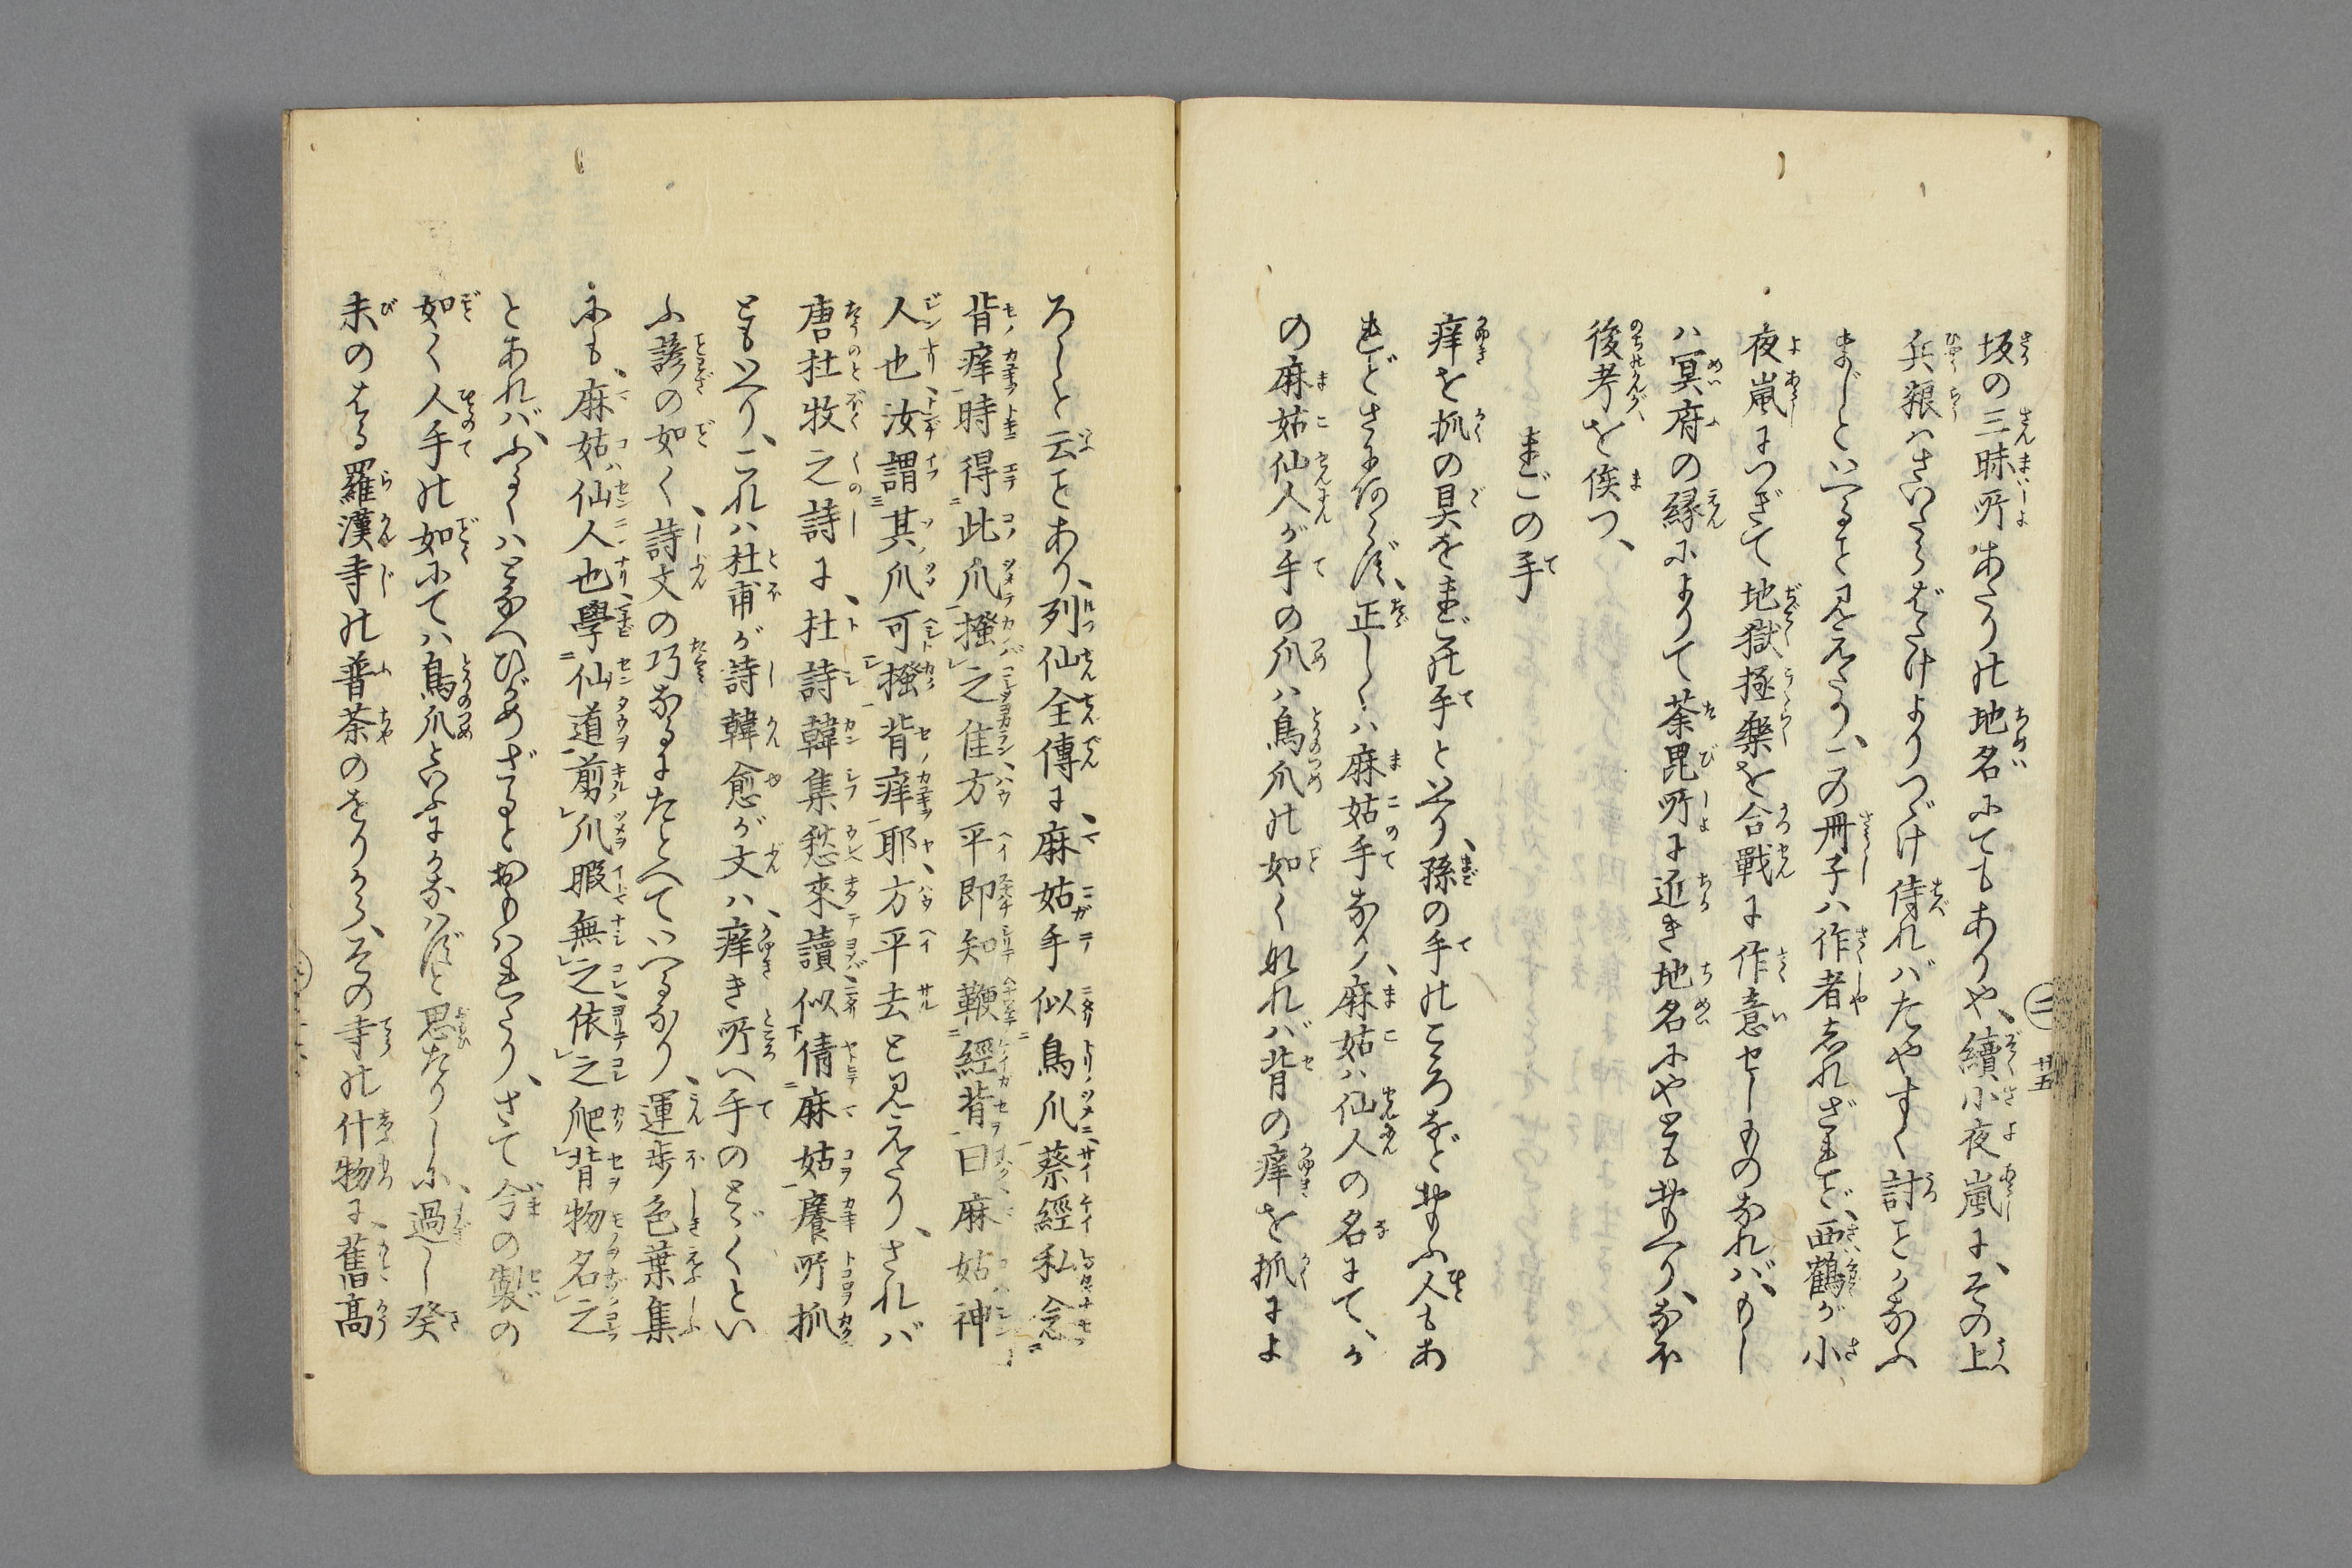 坂の三昧所あたりの地名にてもありや、續小夜嵐に、その上
兵粮はさいたらばたけよりつゞけ侍ればたやすく討ことかなふ
まじといへること見えたり、この冊子は作者しれざれど、西鶴が小
夜嵐につぎて地獄極樂を合戰に作意せしものなれば、もし
ハ冥府の縁によりて荼毘所に近き地名にやとも思へり、なほ
後考を俟つ、
まごの手
痒を抓の具をまごの手といへり、孫の手のこゝろなど思ふ人もあ
れどさにあらず、正しくは麻姑手なり、麻姑ハ仙人の名にて、か
の麻姑仙人が手の爪ハ鳥爪の如くなれバ背の痒を抓によ
ろしと云ことあり、列仙全傳に、麻姑手似鳥爪蔡經私念
背痒時得此爪搔之佳方平即知鞭經背曰麻姑神
人也汝謂其爪可搔背痒耶方平去と見えたり、されバ
唐杜牧之詩に、杜詩韓集愁來讀似倩麻姑癢所抓
ともいへり、これハ杜甫が詩韓愈が文ハ、痒き所へ手のとゞくとい
ふ諺の如く、詩文の巧なるにたとへていへるなり、運歩色葉集
にも、麻姑仙人也學仙道剪爪暇無之依之爬背物名之
とあれバ、ふるくハとなへひがめざること おもハれたり、さて今の製の
如く人手の如にてハ鳥爪といふにかなハずと思たりしに、過し癸
未のはる羅漢寺の普荼のをりから、その寺の什物に、舊高
二 廿五